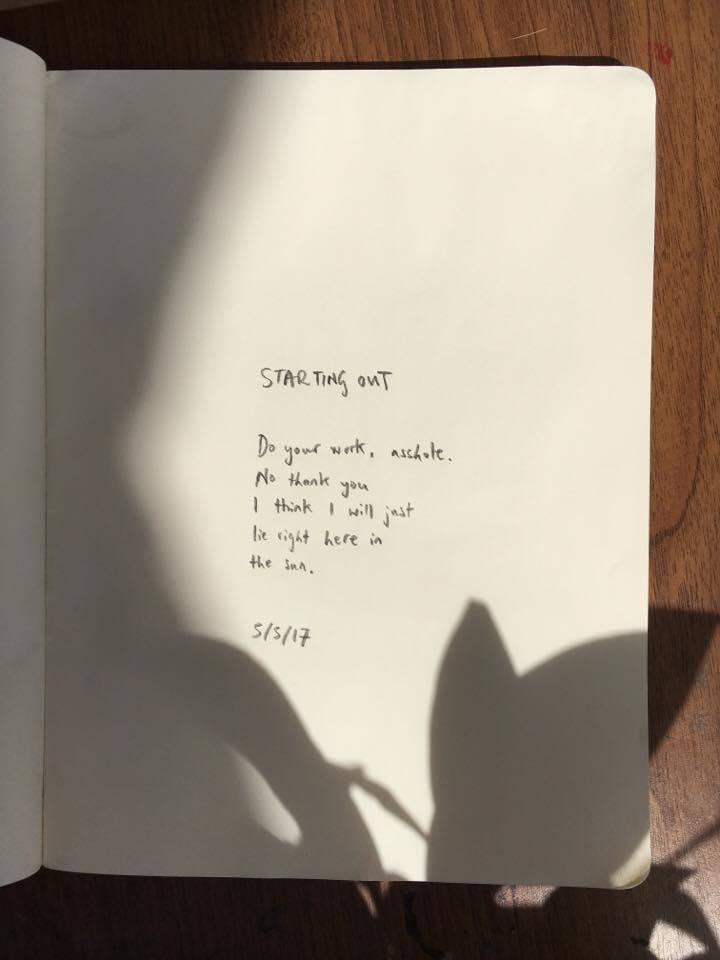 STARTING OUT
Do your work, asshole.
No thank you
I think I will just
lie right here in
the sun.
5/5/17